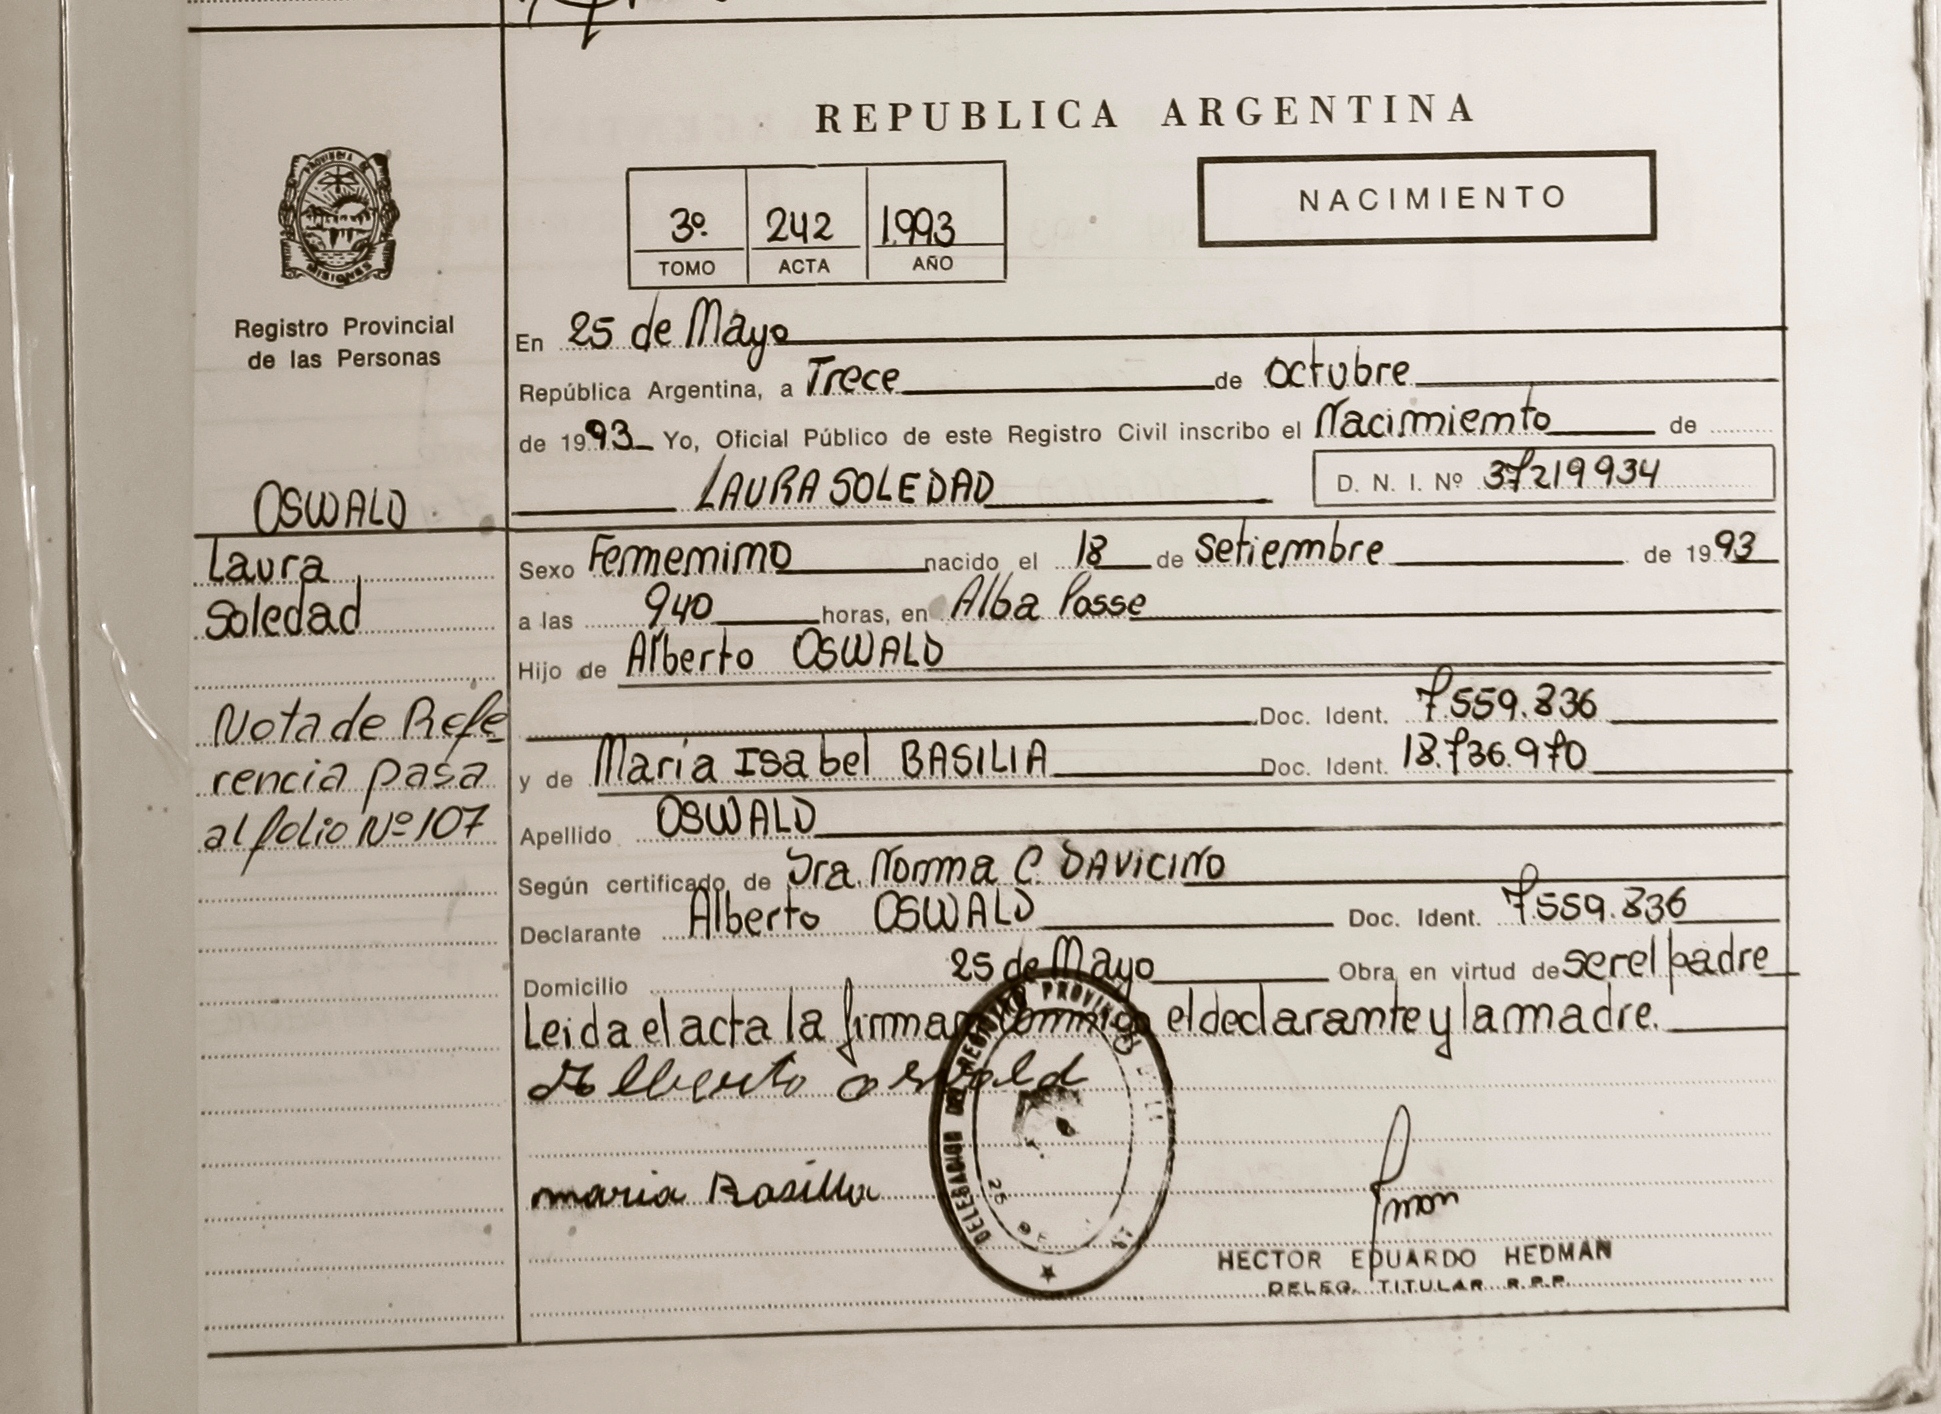 REPUBLICA ARGENTINA
PROVINCIA DE
MISIONES
Registro Provincial
de las Personas
3º 242 1993
TOMO ACTA AÑO
NACIMIENTO
En 25 de Mayo
República Argentina, a Trece de octubre
de 1993 Yo, Oficial Público de este Registro Civil inscribo el Nacimiento de
LAURA SOLEDAD D. N. I. Nº 37219934
OSWALD
Laura
Soledad
Nota de Refe
rencia pasa
al folio Nº 107
Sexo Femenino nacido el 18 de setiembre de 1993
a las 940 horas, en Alba Posse
Hijo de Alberto OSWALD
Doc. Ident. 7.559.836
y de María Isabel BASILIA Doc. Ident. 18.736.970
Apellido OSWALD
Según certificado de Dra. Norma C. DAVICINO
Declarante Alberto OSWALD Doc. Ident. 7.559.836
Domicilio 25 de Mayo Obra en virtud de ser el padre
Leida el acta la firman conmigo el declarante y la madre.
Alberto Oswald
maria Basilia
DELEGACION DEL REGISTRO PROVINCIAL
25 DE
HECTOR EDUARDO HEDMAN
DELEG. TITULAR R.P.P.